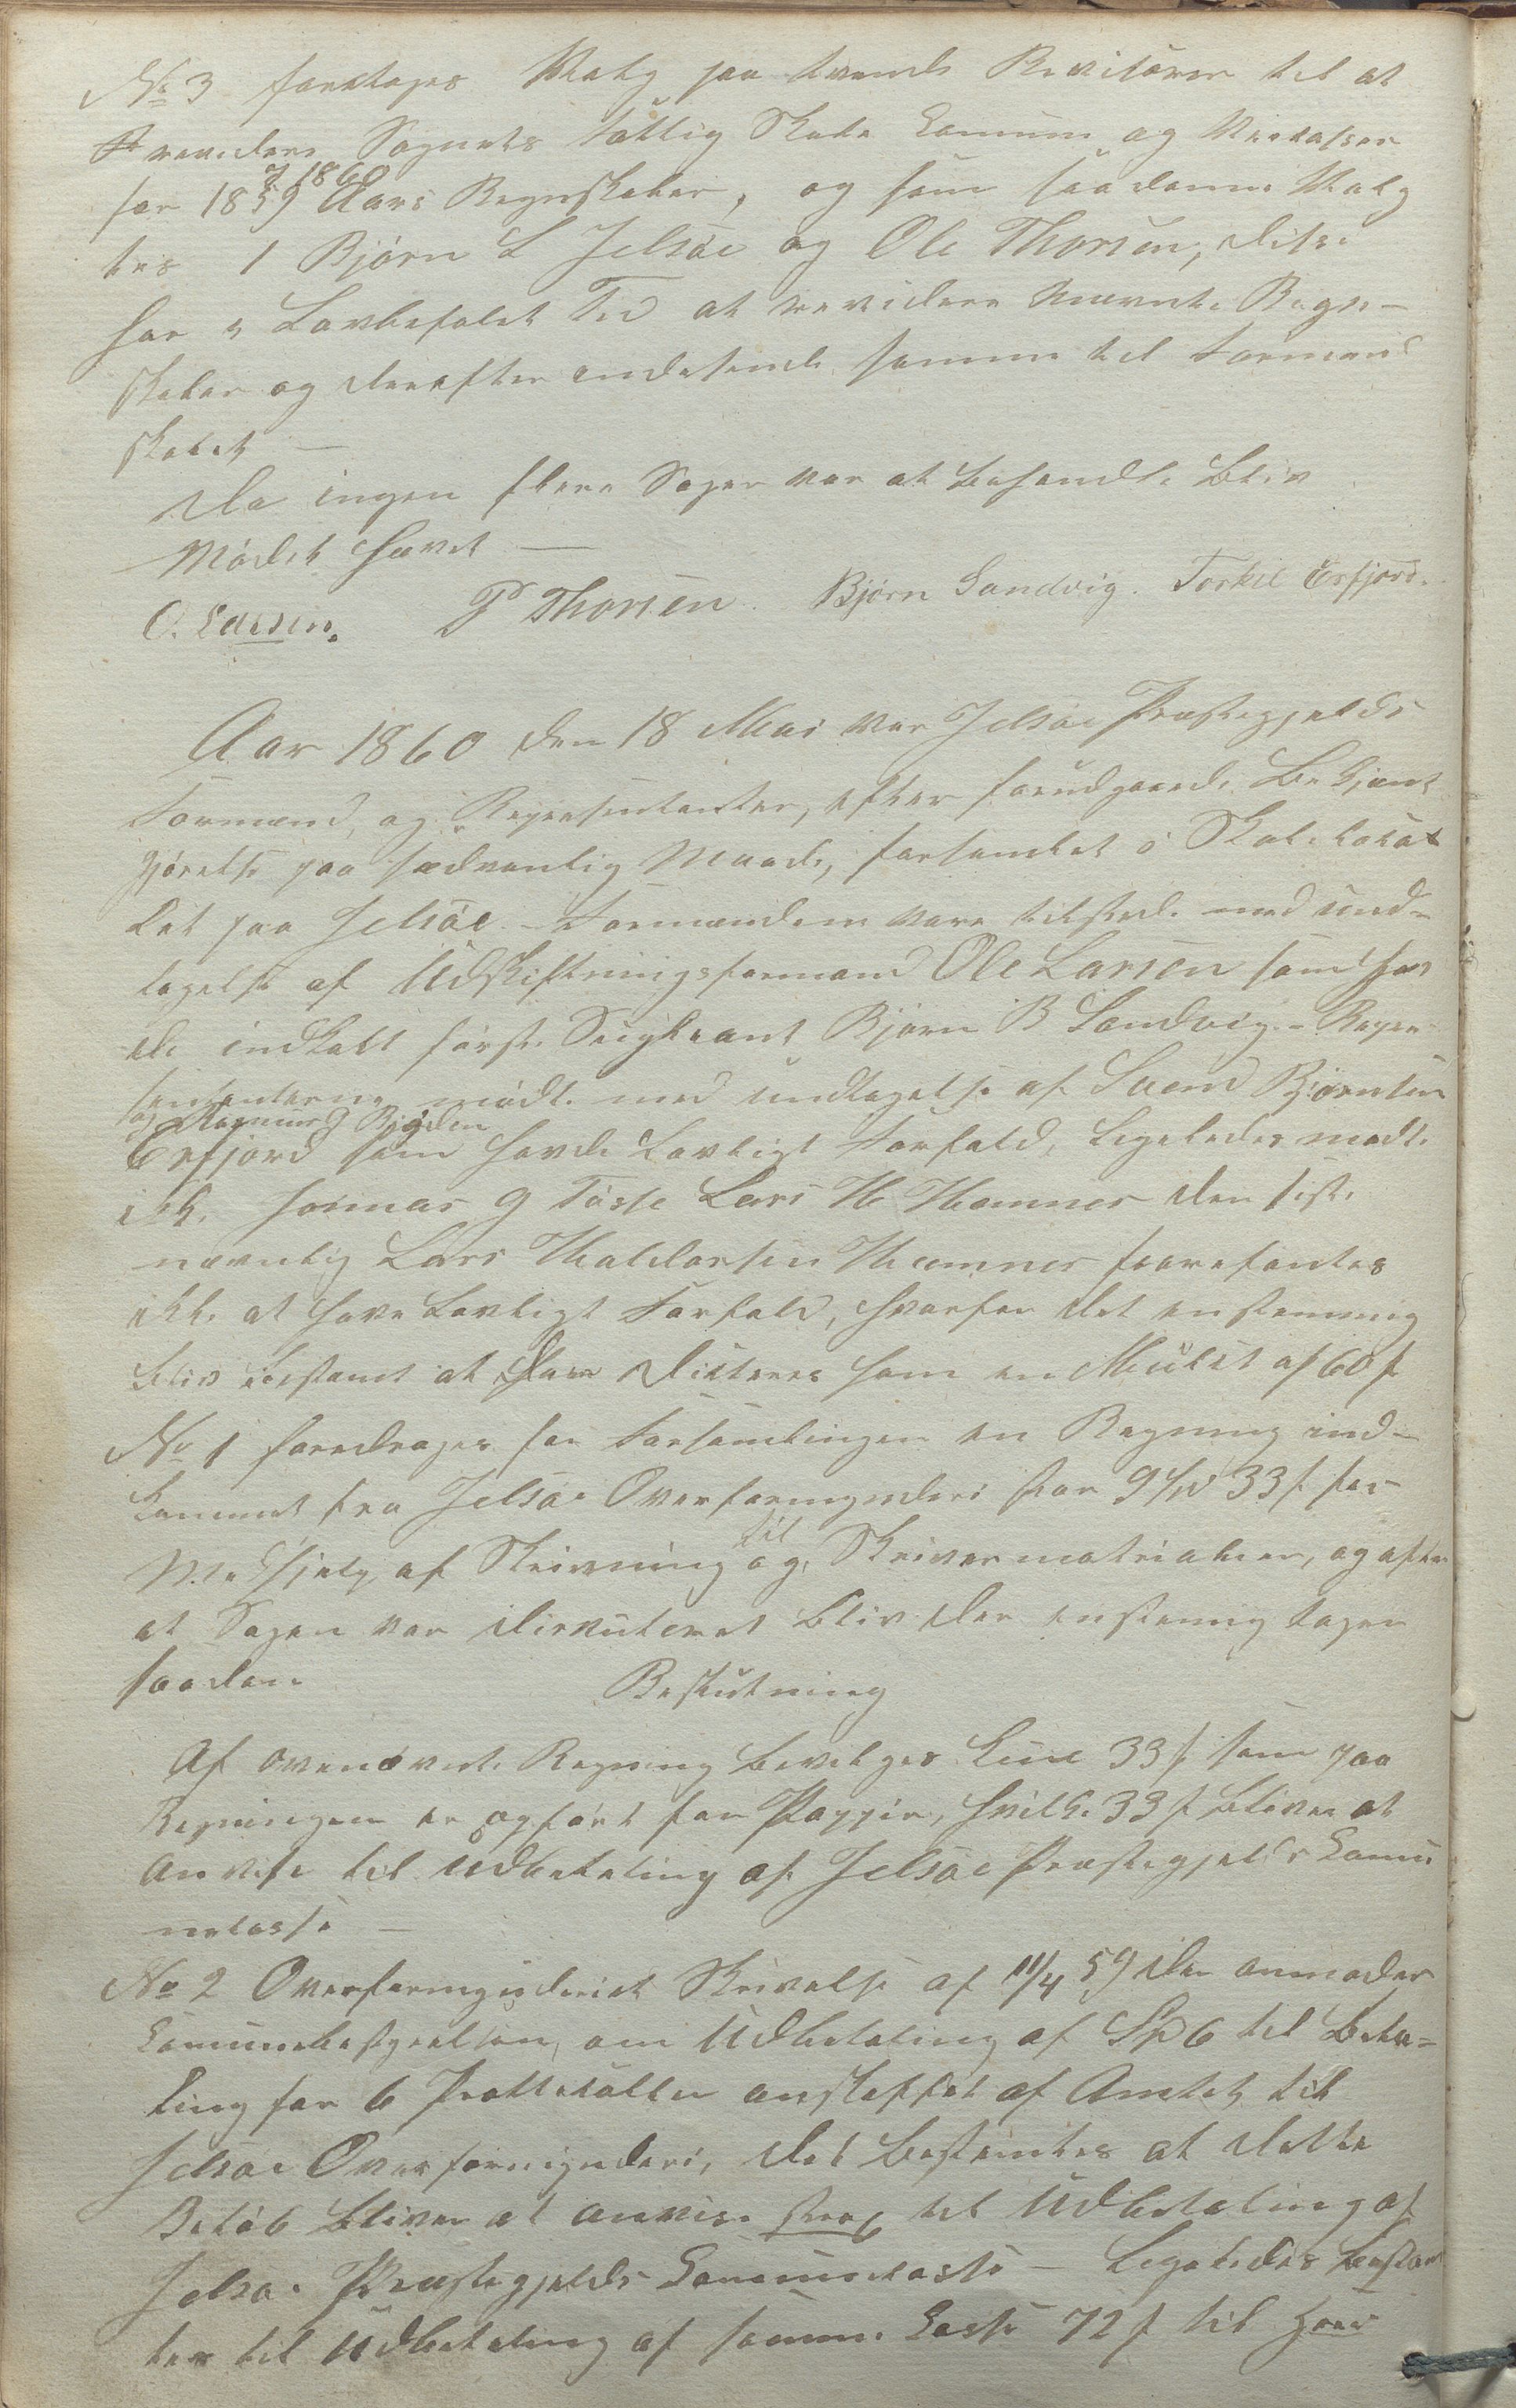 No 3 foretages Valg paa tvende Revisorer til at
revidere Sognets Fattig Skole Comune og
for 1859 & 1860 Aars Regnskaber, og som saadanne Valg
tes 1 Bjørn L Jelsøe og Ole Thorsen, disse
har i Lovbefalet Tid at revidere nævnte Regn-
skaber og derefter indesende samme til Formand
skabet —
Da ingen flere Sager var at behandle blev
Mødet hævet —
O. Larsen. P Thorsen. Bjørn Sandvig. Torkil Erfjord.
Aar 1860 den 18 Mai var Jelsøe Præstegjelds
Formænd, og Repræsentanter, efter forudgaaede Bekjent
gjørelse paa sædvanlig Maade, forsamlet i Skolelokal
let paa Jelsøe – Formændene vare tilstede med und-
tagelse af Udskiftningsformand Ole Larsen som hav
de indkalt første Supleant Bjørn B Sandvig – Repræ
sentanterne mødte med undtagelse af Svend Bjørnsen
og Rasmus J Bygden
Erfjord som havde Lovligt Forfald, ligeledes mødte
ikke Jonnas G Tøsse Lars H Hamnes den siste
nævnlig Lars Haldorsen Hamnes foran fantes
ikke at have Lovligt Forfald, hvorfor det enstemmig
blev bestemt at han dicteres som en Mulct af 60 s
No 1 foredrages for Forsamlingen en Regning ind-
kommet fra Jelsøe Overformynderi stor 9 Spd 33 s for
Medhjelp af Skrivning og til Skrivermatrialier, og efter
at Sagen var discuteret blev der enstemig tagen
saadan Beslutning
Af ovennævnte Regning bevilges kun 33 s som paa
Regningen er opført for Pappir, hvilke 33 s bliver at
anvise til Udbetaling af Jelsøe Præstegjelds Comu
nekasse —
No 2 Overformynderiet Skrivelse af 11/4 59 der anmoder
Comunebestyrelsen, om Udbetaling af Spd 6 til Beta-
ling for 6 Protokoller anskaffet af Amtet til
Jelsøe Overformynderi, det bestemtes at dette
Beløb bliver at anvise strax til Udbetaling af
Jelsøe Præstegjelds Comunekasse — Ligeledes bestem
tes til Udbetaling af samme Casse 72 s til